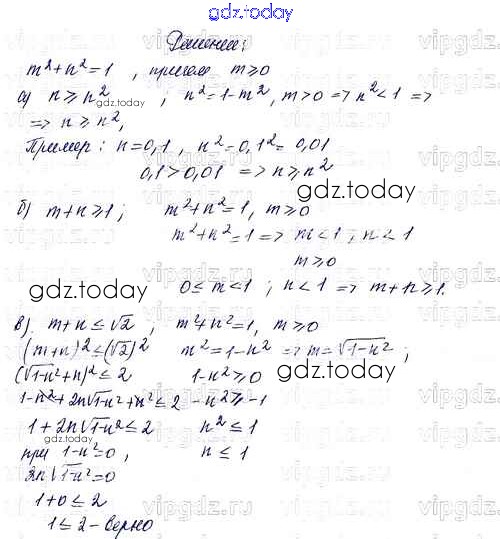 gdz.today
Решение:
m²+n²=1 , причем m≥0
а) n≥n² ; n²=1-m², m>0 => n²<1 =>
=> n≥n²,
Пример: n=0,1, n²=0,1²=0,01
0,1>0,01 => n≥n²
б) m+n≥1; m²+n²=1, m≥0
m²+n²=1 => m<1, n<1
m≥0
0≤m<1; n<1 => m+n≥1.
в). m+n≤√2 , m²+n²=1, m≥0
(m+n)²≤(√2)² m²=1-n² => m=√1-n² ;
(√1-n²+n)²≤2 1-n²≥0
1-n²+2n√1-n²+n²≤2 -n²≥-1
1+2n√1-n²≤2 n²≤1
при 1-n²=0, n≤1
2n√1-n²=0
1+0≤2
1≤2 - верно